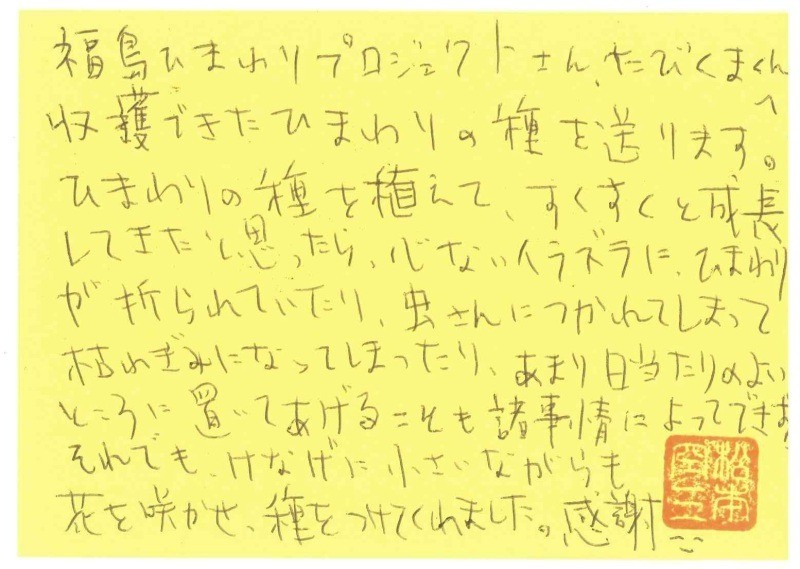 福島ひまわりプロジェクトさん、たびくまくんへ
収獲できたひまわりの種を送ります。
ひまわりの種を植えて、すくすくと成長
してきたと思ったら、心ないイタズラに、ひまわり
が折られていたり、虫さんにつかれてしまって
枯れぎみになってしまったり、あまり日当たりのよい
ところに置いてあげることも諸事情によってできず
それでも、けなげに小さいながらも
花を咲かせ、種をつけてくれました。感謝